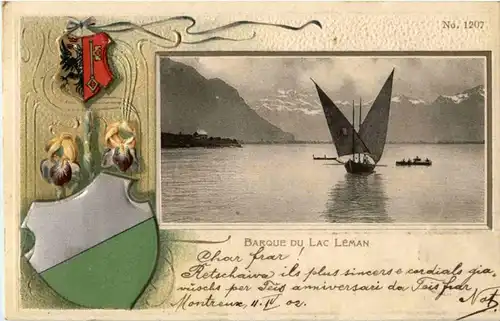 No. 1207
BARQUE DU LAC LÉMAN
Char frar!
Retschaiva ils plus sincers e cordials gia-
vüschs per Teis anniversari da Teis frar,
Montreux, 11. IV 02. Not